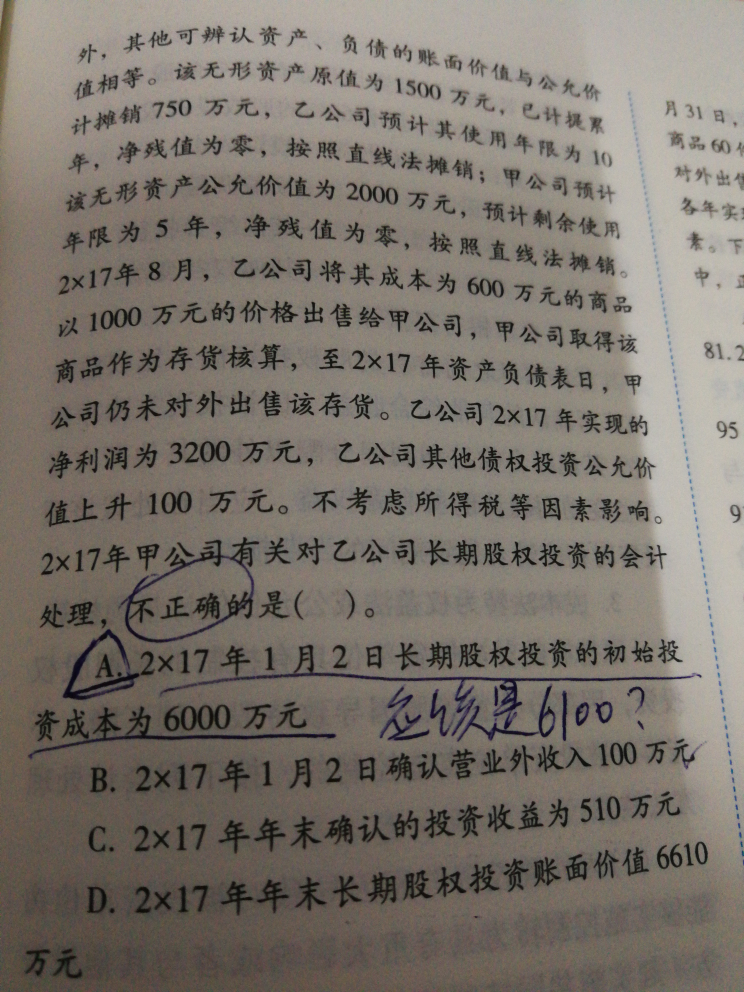 外，其他可辨认资产、负债的账面价值与公允价
值相等。该无形资产原值为1500万元，已计提累
计摊销750万元，乙公司预计其使用年限为10
年，净残值为零，按照直线法摊销；甲公司预计
该无形资产公允价值为2000万元，预计剩余使用
年限为5年，净残值为零，按照直线法摊销。
2×17年8月，乙公司将其成本为600万元的商品
以1000万元的价格出售给甲公司，甲公司取得该
商品作为存货核算，至2×17年资产负债表日，甲
公司仍未对外出售该存货。乙公司2×17年实现的
净利润为3200万元，乙公司其他债权投资公允价
值上升100万元。不考虑所得税等因素影响。
2×17年甲公司有关对乙公司长期股权投资的会计
处理，不正确的是( )。
A. 2×17年1月2日长期股权投资的初始投
资成本为6000万元 应该是6100？
B. 2×17年1月2日确认营业外收入100万元
C. 2×17年年末确认的投资收益为510万元
D. 2×17年年末长期股权投资账面价值6610
万元
月31日，
商品60
对外出售
各年实
素。下
中，
81. 2
95
9